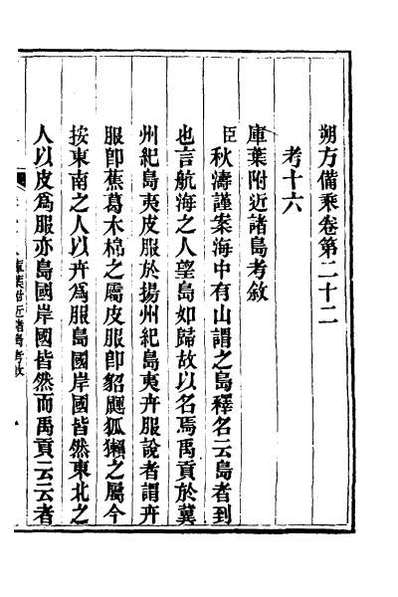 朔方備乘卷第二十二
考十六
庫葉附近諸島考敘
臣秋濤謹案海中有山謂之島釋名云島者到
也言航海之人望島如歸故以名焉禹貢於冀
州紀島夷皮服於揚州紀島夷卉服說者謂卉
服卽蕉葛木棉之屬皮服卽貂鼲狐獺之屬今
按東南之人以卉爲服島國岸國皆然東北之
人以皮爲服亦島國岸國皆然而禹貢云云者
庫葉附近諸島考敘